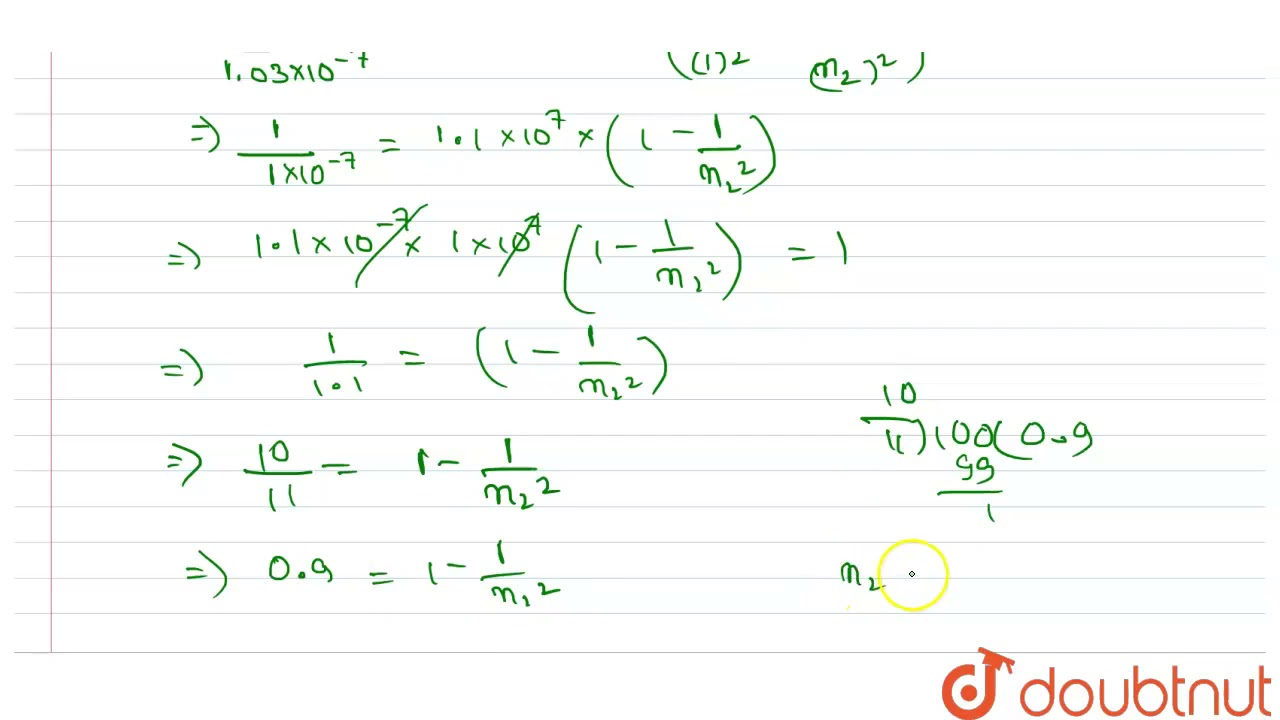 1.03×10⁻⁷ ((1)² (n₂)²)
⇒) 1/1×10⁻⁷ = 1.1 ×10⁷ × (1 − 1/n₂²)
⇒) 1.1×10⁻⁷ × 1×10⁷ (1 − 1/n₂²) = 1
⇒) 1/1.1 = (1 − 1/n₂²)
⇒) 10/11 = 1 − 1/n₂²
10
11)100(0.9
99
1
⇒) 0.9 = 1 − 1/n₂²
n₂
doubtnut